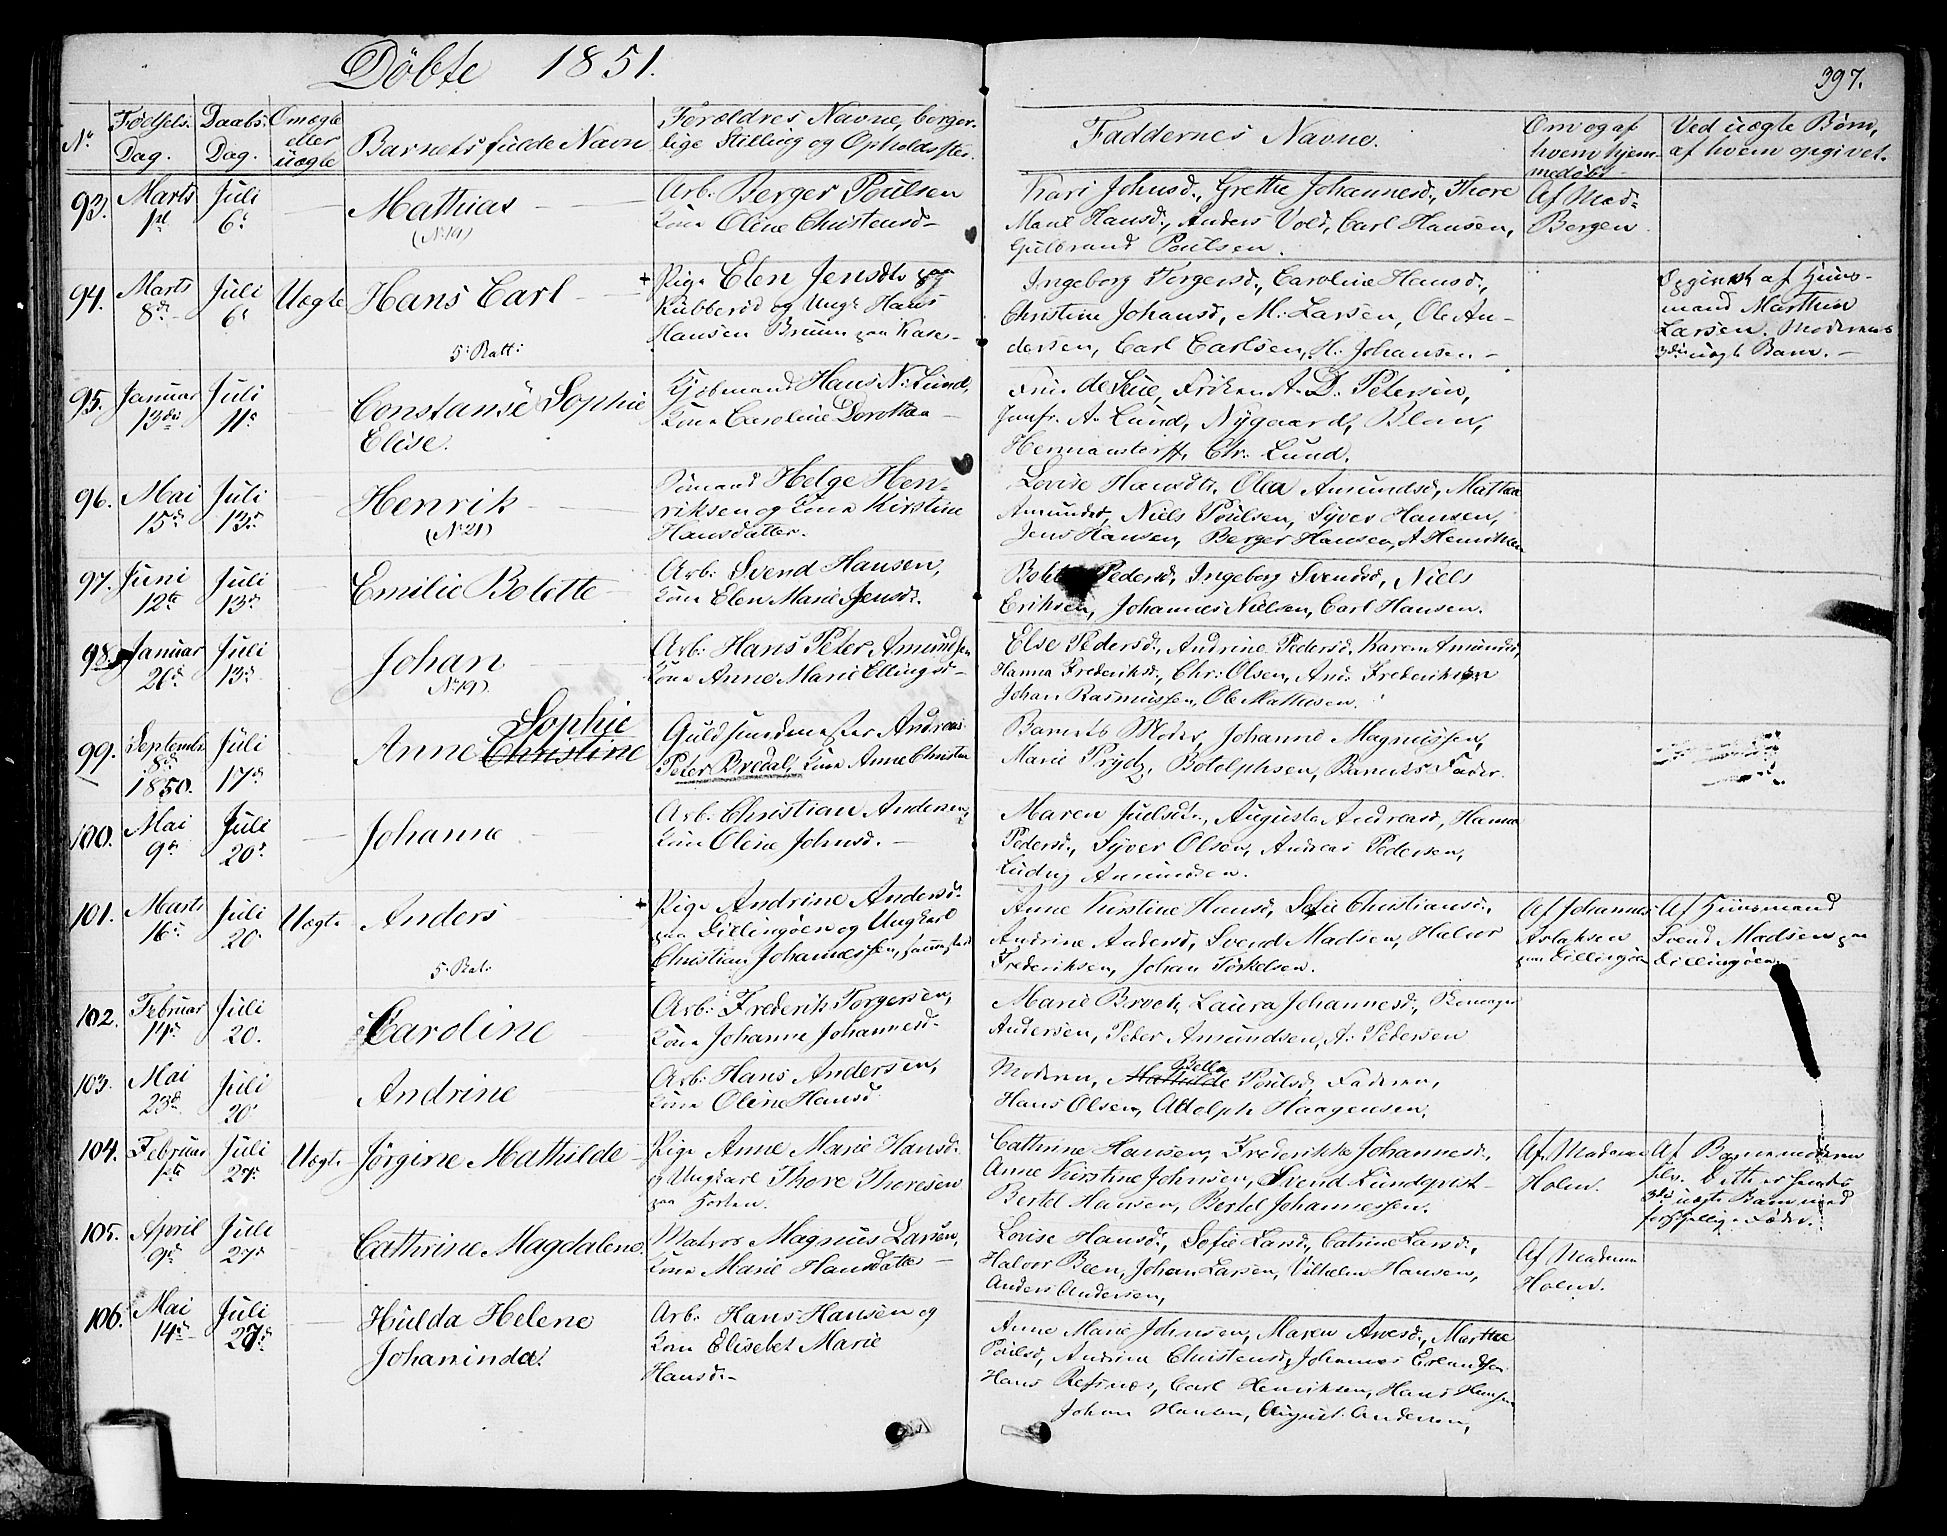 Döbte 1851.
397.
No
Födsels-
Dag.
Daabs-
Dag.
Om ægte
eller
uægte
Barnets fulde Navn
Forældres Navne, borger-
lige Stilling og Opholdssted.
Faddernes Navne.
Om og af
hvem hjem-
medöbt.
Ved uægte Börn,
af hvem opgivet.
93. Marts
1st
Juli
6s
Mathias
(No 19)
Arb. Berger Poulsen
Kone Oline Christensd
Kari Johnsd., Grethe Johannesd., Thore
Marie Hansd., Anders Vold, Carl Hansen,
Guldbrand Poulsen.
Af Mad:
Bergen
94. Marts
8de
Juli
6s
Uægte
Hans Carl
5: Ratt:
+ Pige Elen Jensdtr paa
Kubberöd og Ungk. Hans
Hansen Bruun paa
Ingeborg Torgersd., Caroline Hansd.,
Christine Johansd., M. Larsen, Ole An-
dersen, Carl Carlsen, H. Johansen
Opgivet af Huus-
mand Marthin
Larsen. Moderens
3die uægte Barn.
95. Januar
13de
Juli
11s
Constanse Sophie
Elise.
Kjöbmand Hans N. Lund,
Kone Caroline Dorothea
Fru de Seue, Fröken A. D. Petersen,
Jomfr. A. Lund, Nygaard, Blom,
Hermanstorff, Chr. Lund.
96. Mai
15de
Juli
13de
Henrik
(No 21)
Sömand Helge Hen-
riksen og Kone Kirstine
Hansdatter.
Lovise Hansdtr, Olea Amundsd., Mathea
Amundsd, Niels Poulsen, Syver Hansen,
Jens Hansen, Berger Hansen, A Henriksen
97. Juni
12te
Juli
13de
Emilie Bolette
Arb: Svend Hansen,
Kone Elen Marie Jensd.
Pedersd., Ingeborg Svendsd., Niels
Eriksen, Johannes Nielsen, Carl Hansen.
98. Januar
26de
Juli
13de
Johan
No 19).
Arb: Hans Peter Amundsen
Kone Anne Marie Ellingsd
Else Pedersd., Andrine Pedersd, Karen Amundsd,
Hanna Frederiksd., Chr: Olsen, And. Frederiksen
Johan Rasmussen, Ole Mathisen.
99. Septembr
8de
1850.
Juli
17de
Sophie
Anne Christine
Guldsmedmester Andreas
Peter Bredal, Kone Anne Christine
Barnets Moder, Johanne Magnussen,
Marie Prydz, Botolphsen, Barnets Fader.
100. Mai
9de
Juli
20de
Johanne
Arb: Christian Andersen,
Kone Oline Johnsd.
Maren Juelsdtr., Auguste Andreasd., Hanna
Pedersd., Syver Olsen, Andreas Pedersen,
Ludvig Amundsen.
101. Marts
16de
Juli
20.
Uægte
Anders
5: Rats
+ Pige Andrine Andersd.
paa Dillingöen og Ungkarl
Christian Johannessen, sammesteds
Anne Kirstine Hansd., Sofie Christiansd.,
Andrine Andersd., Svend Madsen, Halvor
Frederiksen, Johan Torkelsen.
Af Johannes
Aslaksen
paa Dillingöen
Af Huusmand
Svend Madsen paa
Dillingöen.
102. Februar
14de
Juli
20.
Caroline
Arb: Frederik Torgersen,
Kone Johanne Johannesd.
Marie Broch, Laura Johannesd.,
Andersen, Peter Amundsen, A: Pedersen
103. Mai
23de
Juli
20
Andrine
Arb: Hans Andersen,
Kone Oline Hansd.
Bella
Moderen, Mathilde Poulsd, Faderen,
Hans Olsen, Adolph Haagensen.
104. Februar
1ste
Juli
27de
Uægte
Jörgine Mathilde
Pige Anne Marie Hansd.
og Ungkarl Thore Thoresen
paa Horten.
Cathrine Hansen, Frederikke Johannesd.,
Anne Kirstine Johnsen, Svend Lundqvist
Bertel Hansen, Bertel Johannessen.
Af Madam
Holm.
Af Barnemoderen
selv. Dette er hendes
3die uægte Barn med
forskjellige Fædre.
105. April
9de
Juli
27de
Cathrine Magdalene.
Matros Magnus Larsen,
Kone Marie Hansdatter
Lovise Hansd., Sofie Larsd., Catrine Larsd.,
Halvor Been, Johan Larsen, Vilhelm Hansen,
Anders Andersen,
Af Madam
Holm.
106. Mai
14de
Juli
27de
Hulda Helene
Johaninda.
Arb. Hans Hansen og
Kone Elisabet Marie
Hansd.
Anne Marie Johnsen, Maren Anesd., Marthe
Poulsd, Andrine Christensd, Johannes Erlandsen
Hans Refsnæs, Carl Henriksen, Hans Hansen
Johan Hansen, August Andersen,